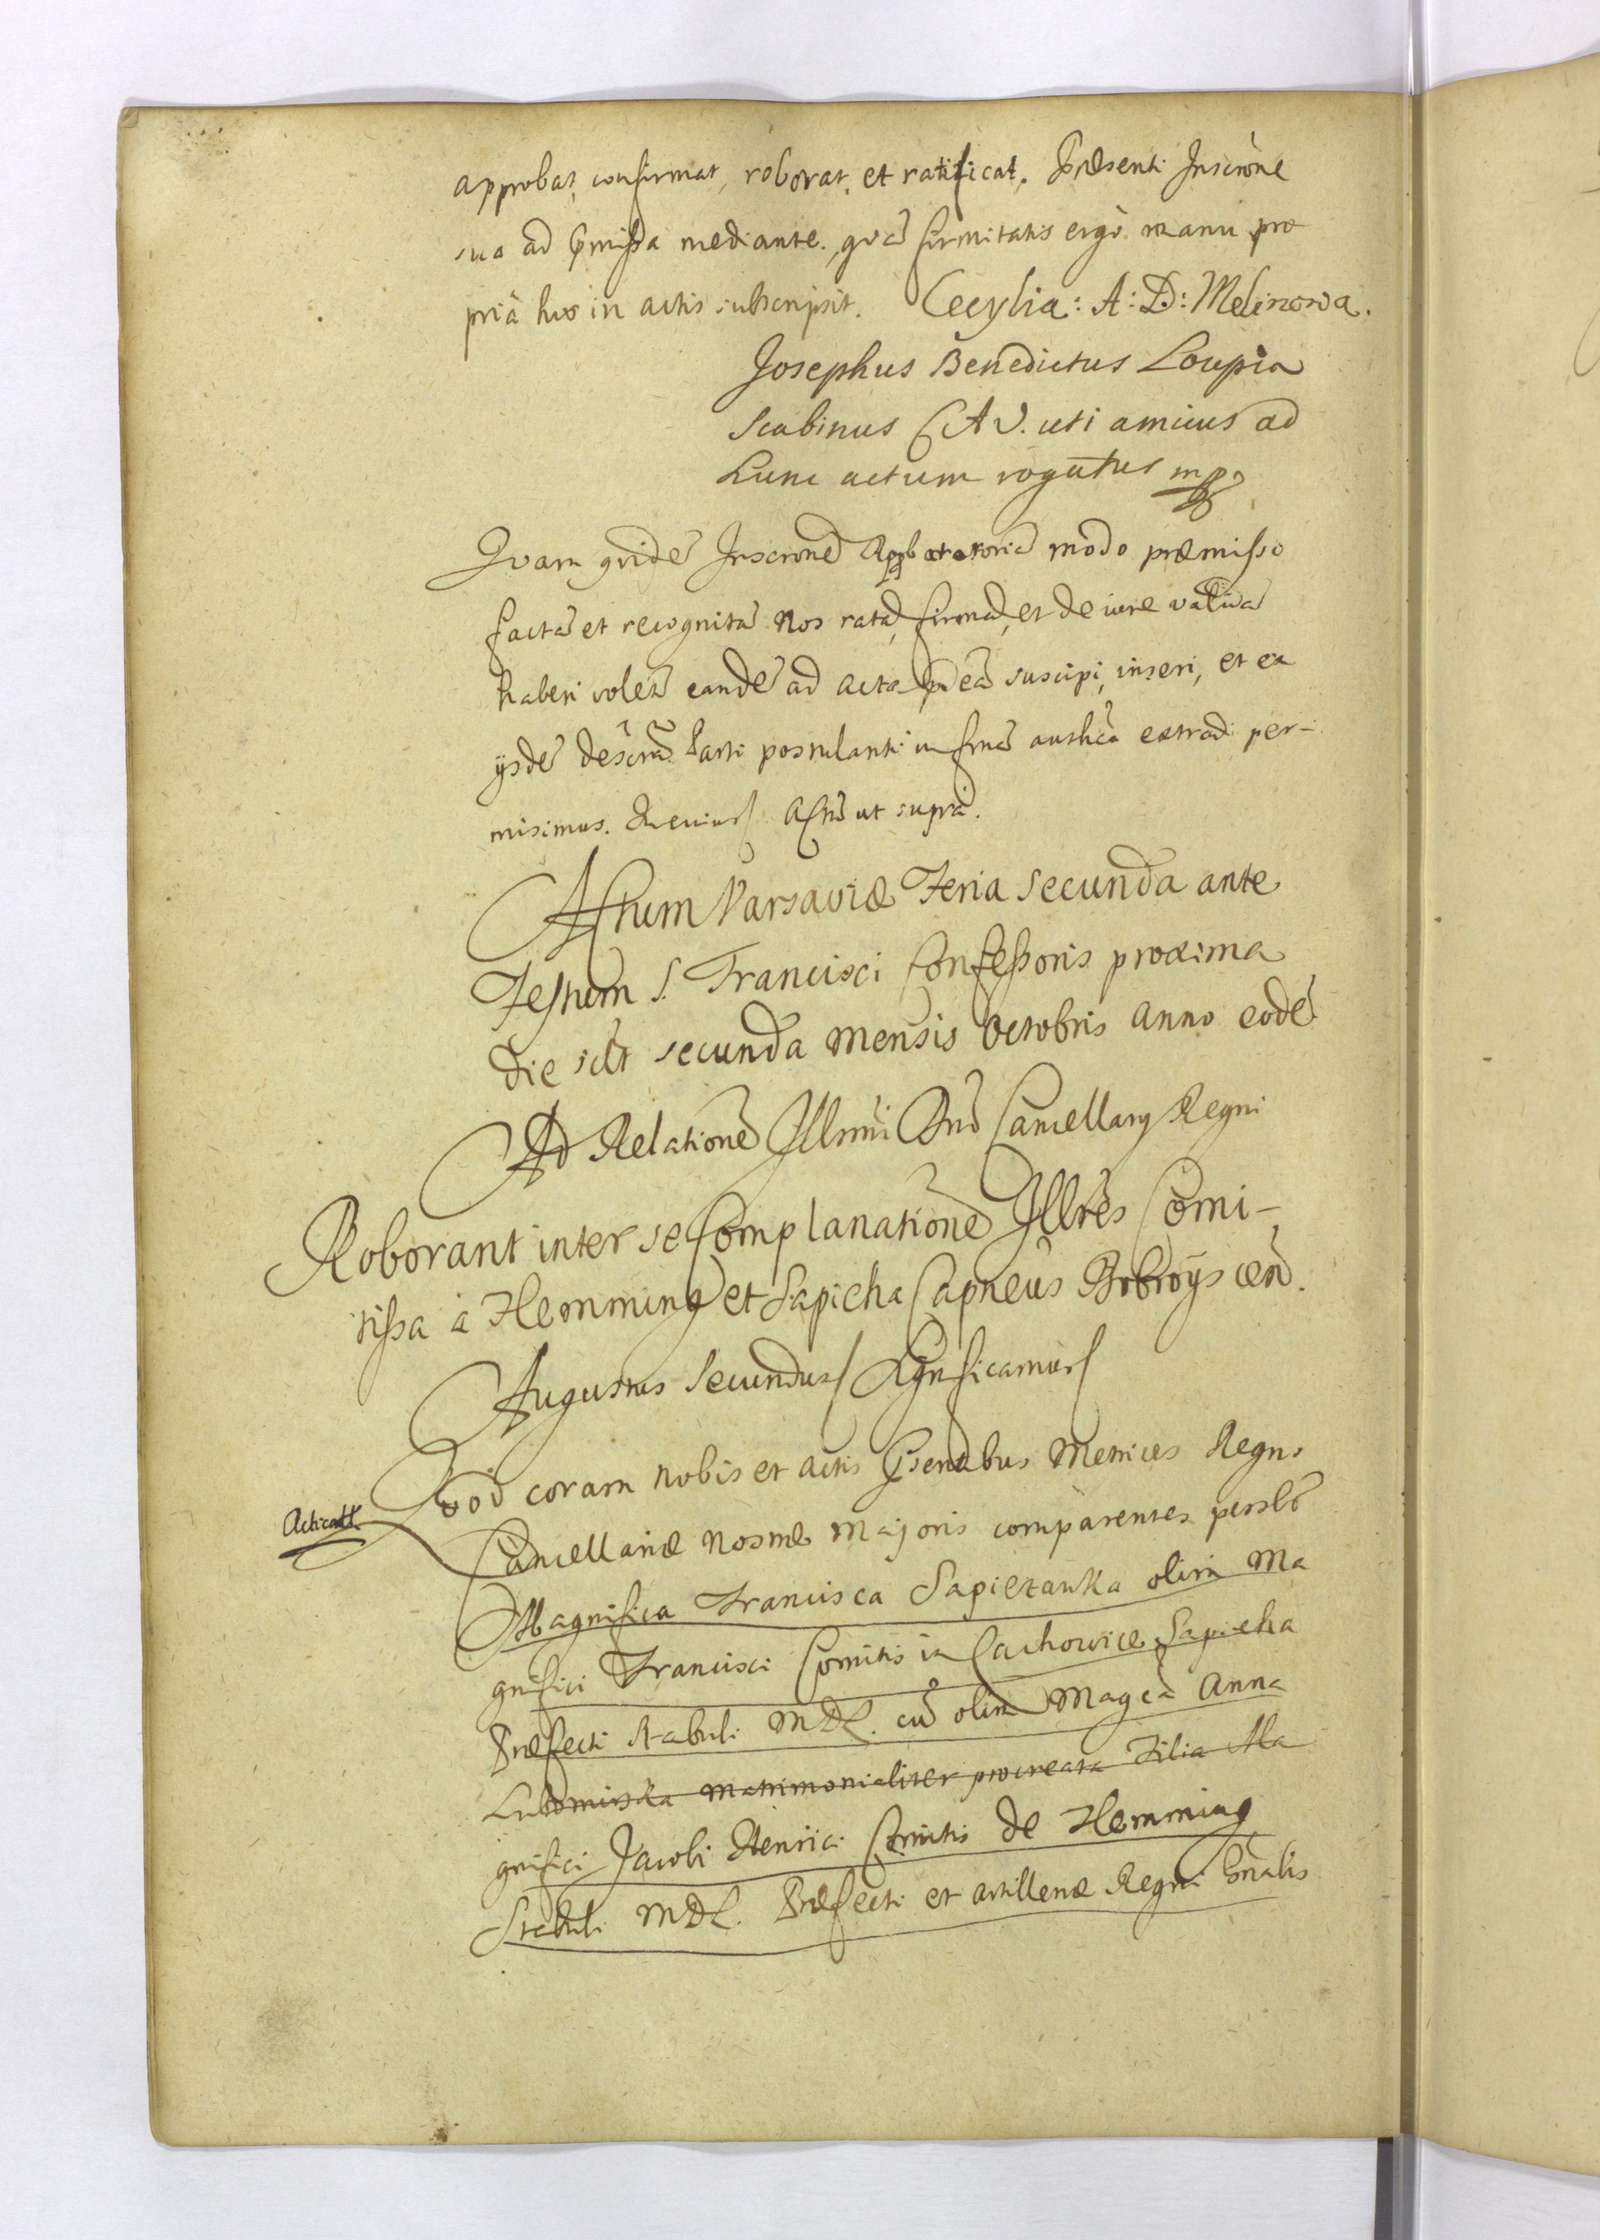 approbat, confirmat, roborat, et ratificat. Præsenti Inscrõne
sua ad p̃missa mediante. quã firmitatis ergò manu pro
priâ hic in actis subscripsit. Cecylia: A: D: Melinowa.
Josephus Benedictus Loupia
Scabinus CAV. uti amicus ad
hunc actum rogatus mpp
Quam quidẽ Inscronẽ Approbatoriã modo præmisso
factã et recognitã Nos ratã, firmã, et de iure validã
haberi volẽs eandẽ ad acta p̃ñtia suscipi, inseri, et ex
ijsdẽ descrã Parti postulanti in frmã authca extradi per-
misimus. Actũ ut suprà.
Actum Varsaviæ Feria Secunda ante
Festum S. Francisci Confessoris proxima
die sclt secunda Mensis Octobris Anno eodẽ
Ad Relationẽ Illrmi Dñi Cancellarij Regni
Roborant inter se Complanationẽ Illrẽs Comi-
tissa à Flemming et Sapieha Capneus Bobroÿscen.
Augustus Secundus Sgñficamus
Quod coram nobis et actis p̃sentibus Metrices Regni
Acticatt.
Cancellariæ nosræ Majoris comparentes persl̃r
Magnifica Francisca Sapiezanka olim Ma
gnifici Francisci Comitis in Czachowice Sapieha
Præfecti Stabuli MDL. cũ olim Magcã Anna
Lubomirska Matrimonialiter procreata Filia Ma
gnifici Jacobi Henrici Comitis de Flemming
Stabuli MDL. Præfecti et artilleriæ Regni Gñalis